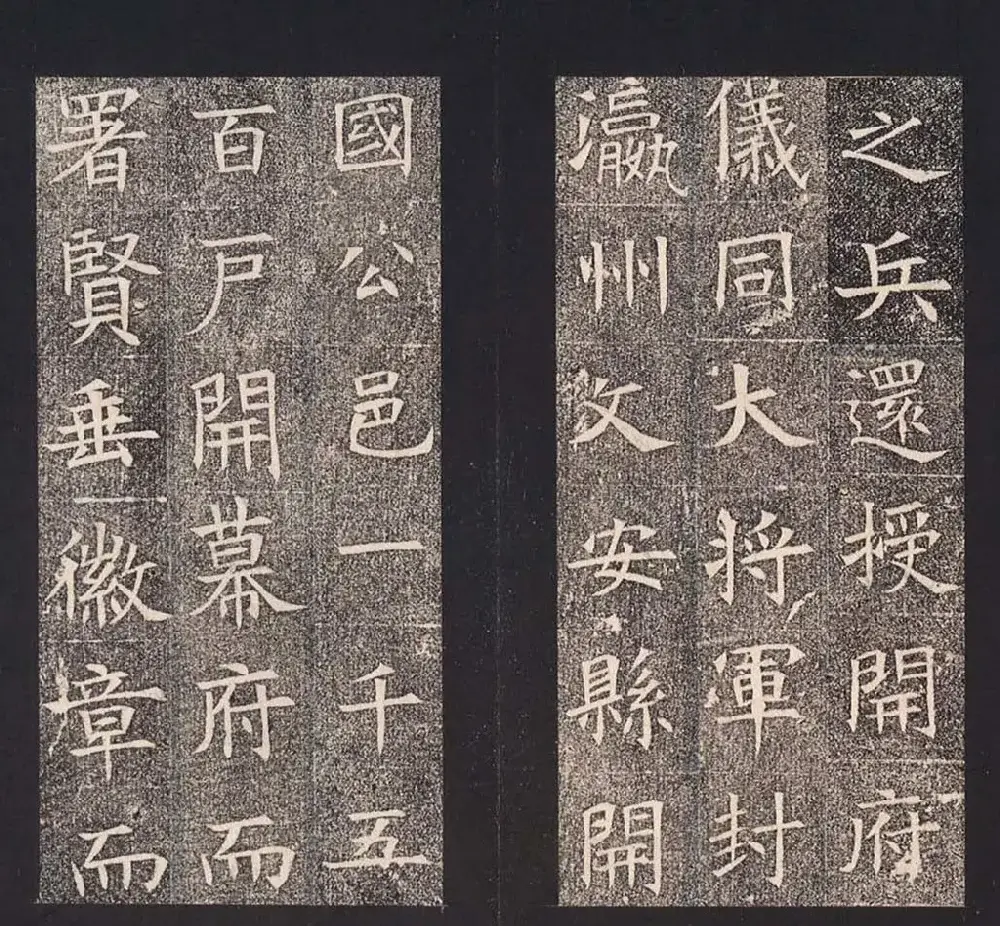 之兵還授開府
儀同大將軍封
瀛州文安縣開
國公邑一千五
百户開幕府而
署賢垂徽章而